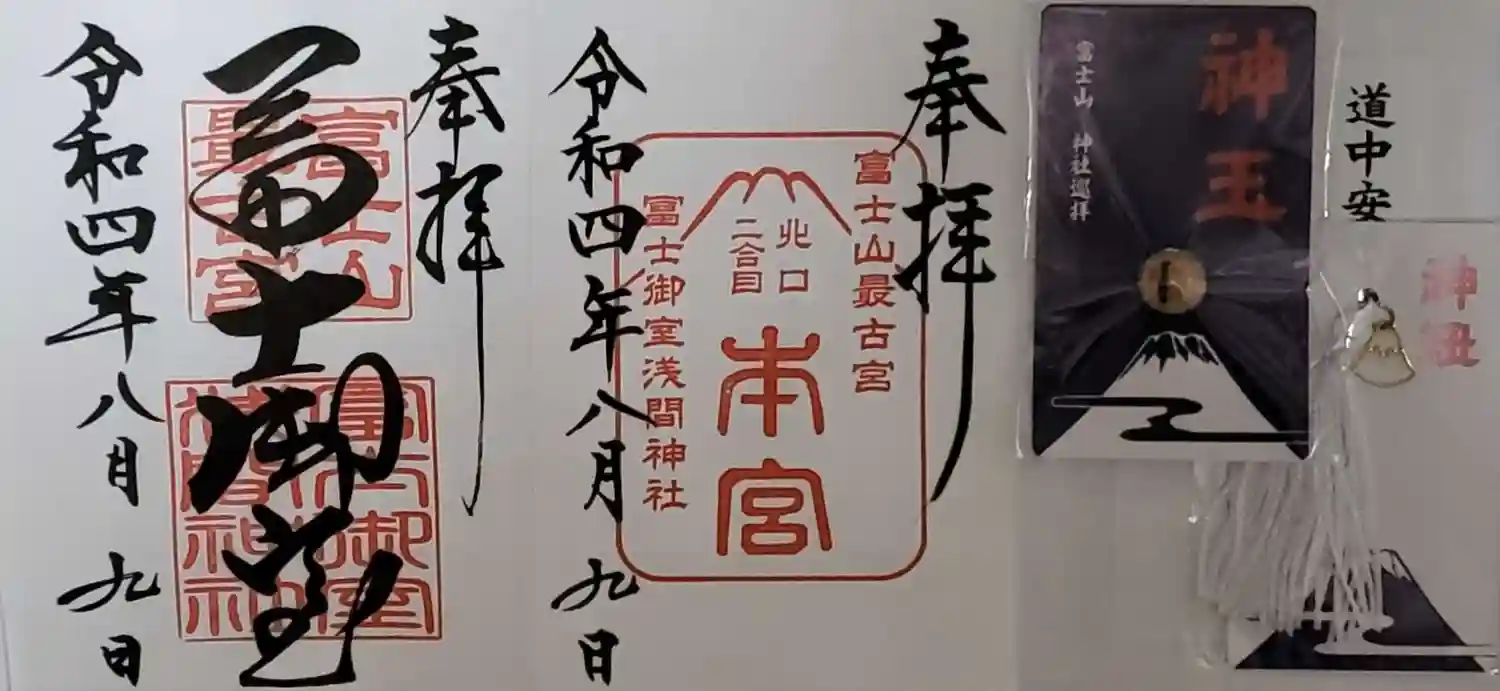 奉拝
富士山
最古宮
冨士御室
冨士御室
浅間神社
令和四年八月九日
奉拝
富士山最古宮
北口
二合目
本宮
冨士御室浅間神社
令和四年八月九日
神玉
富士山 神社巡拝
道中安
神